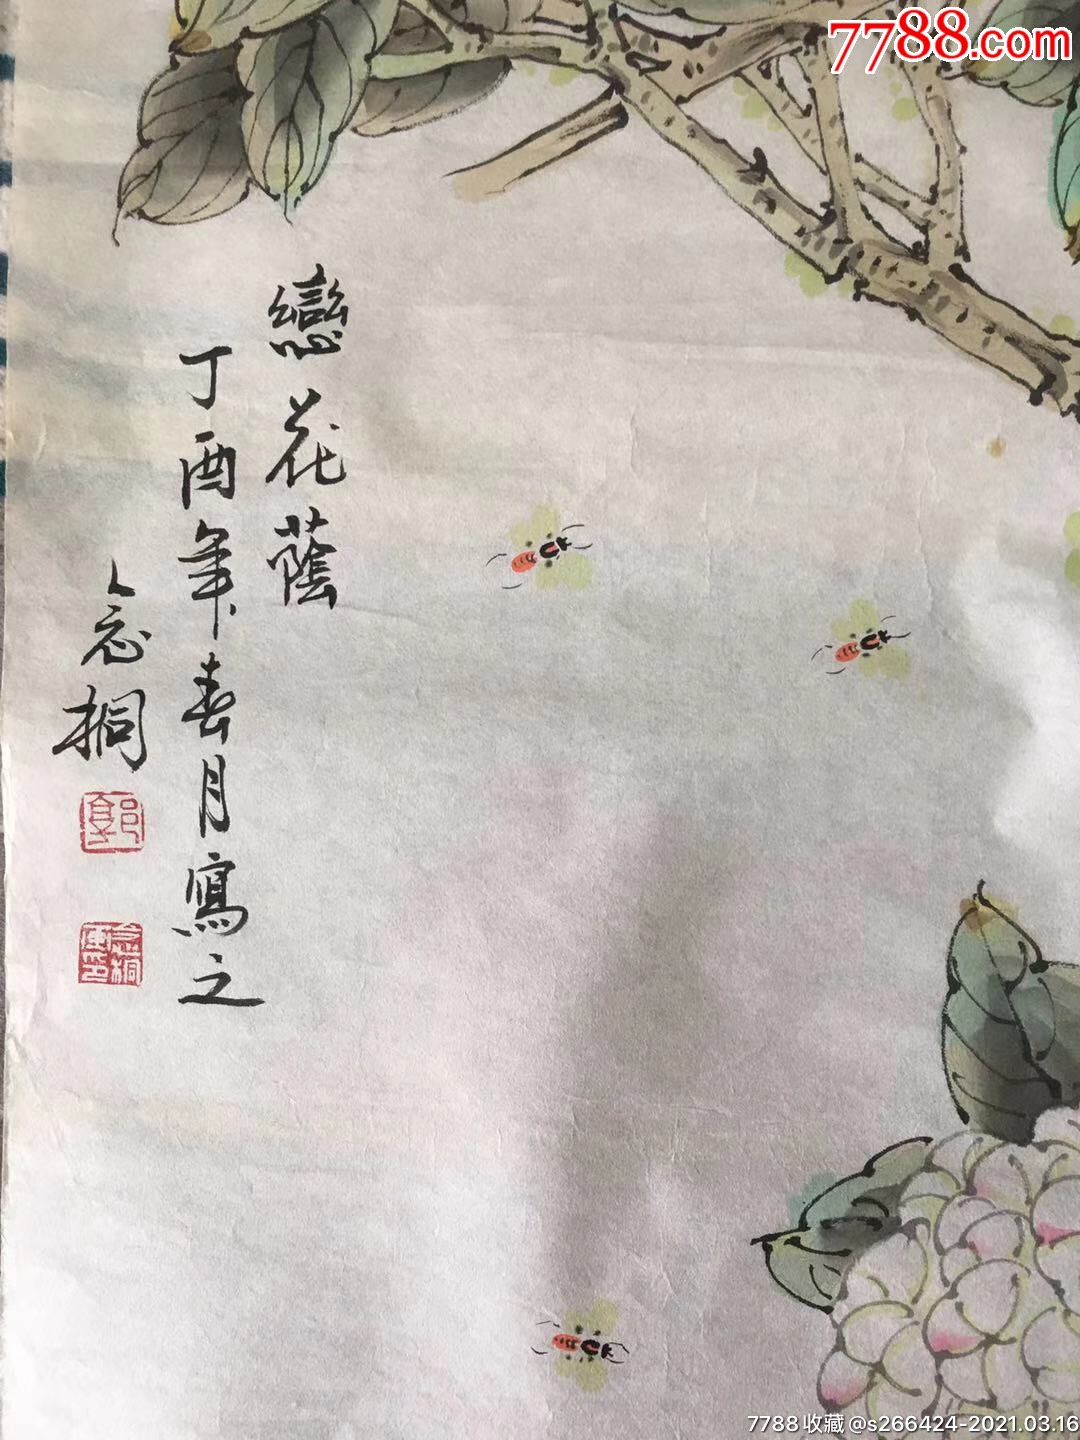 7788.com
戀花蔭
丁酉年春月寫之
念桐
郭
念桐
7788收藏@s266424-2021.03.16